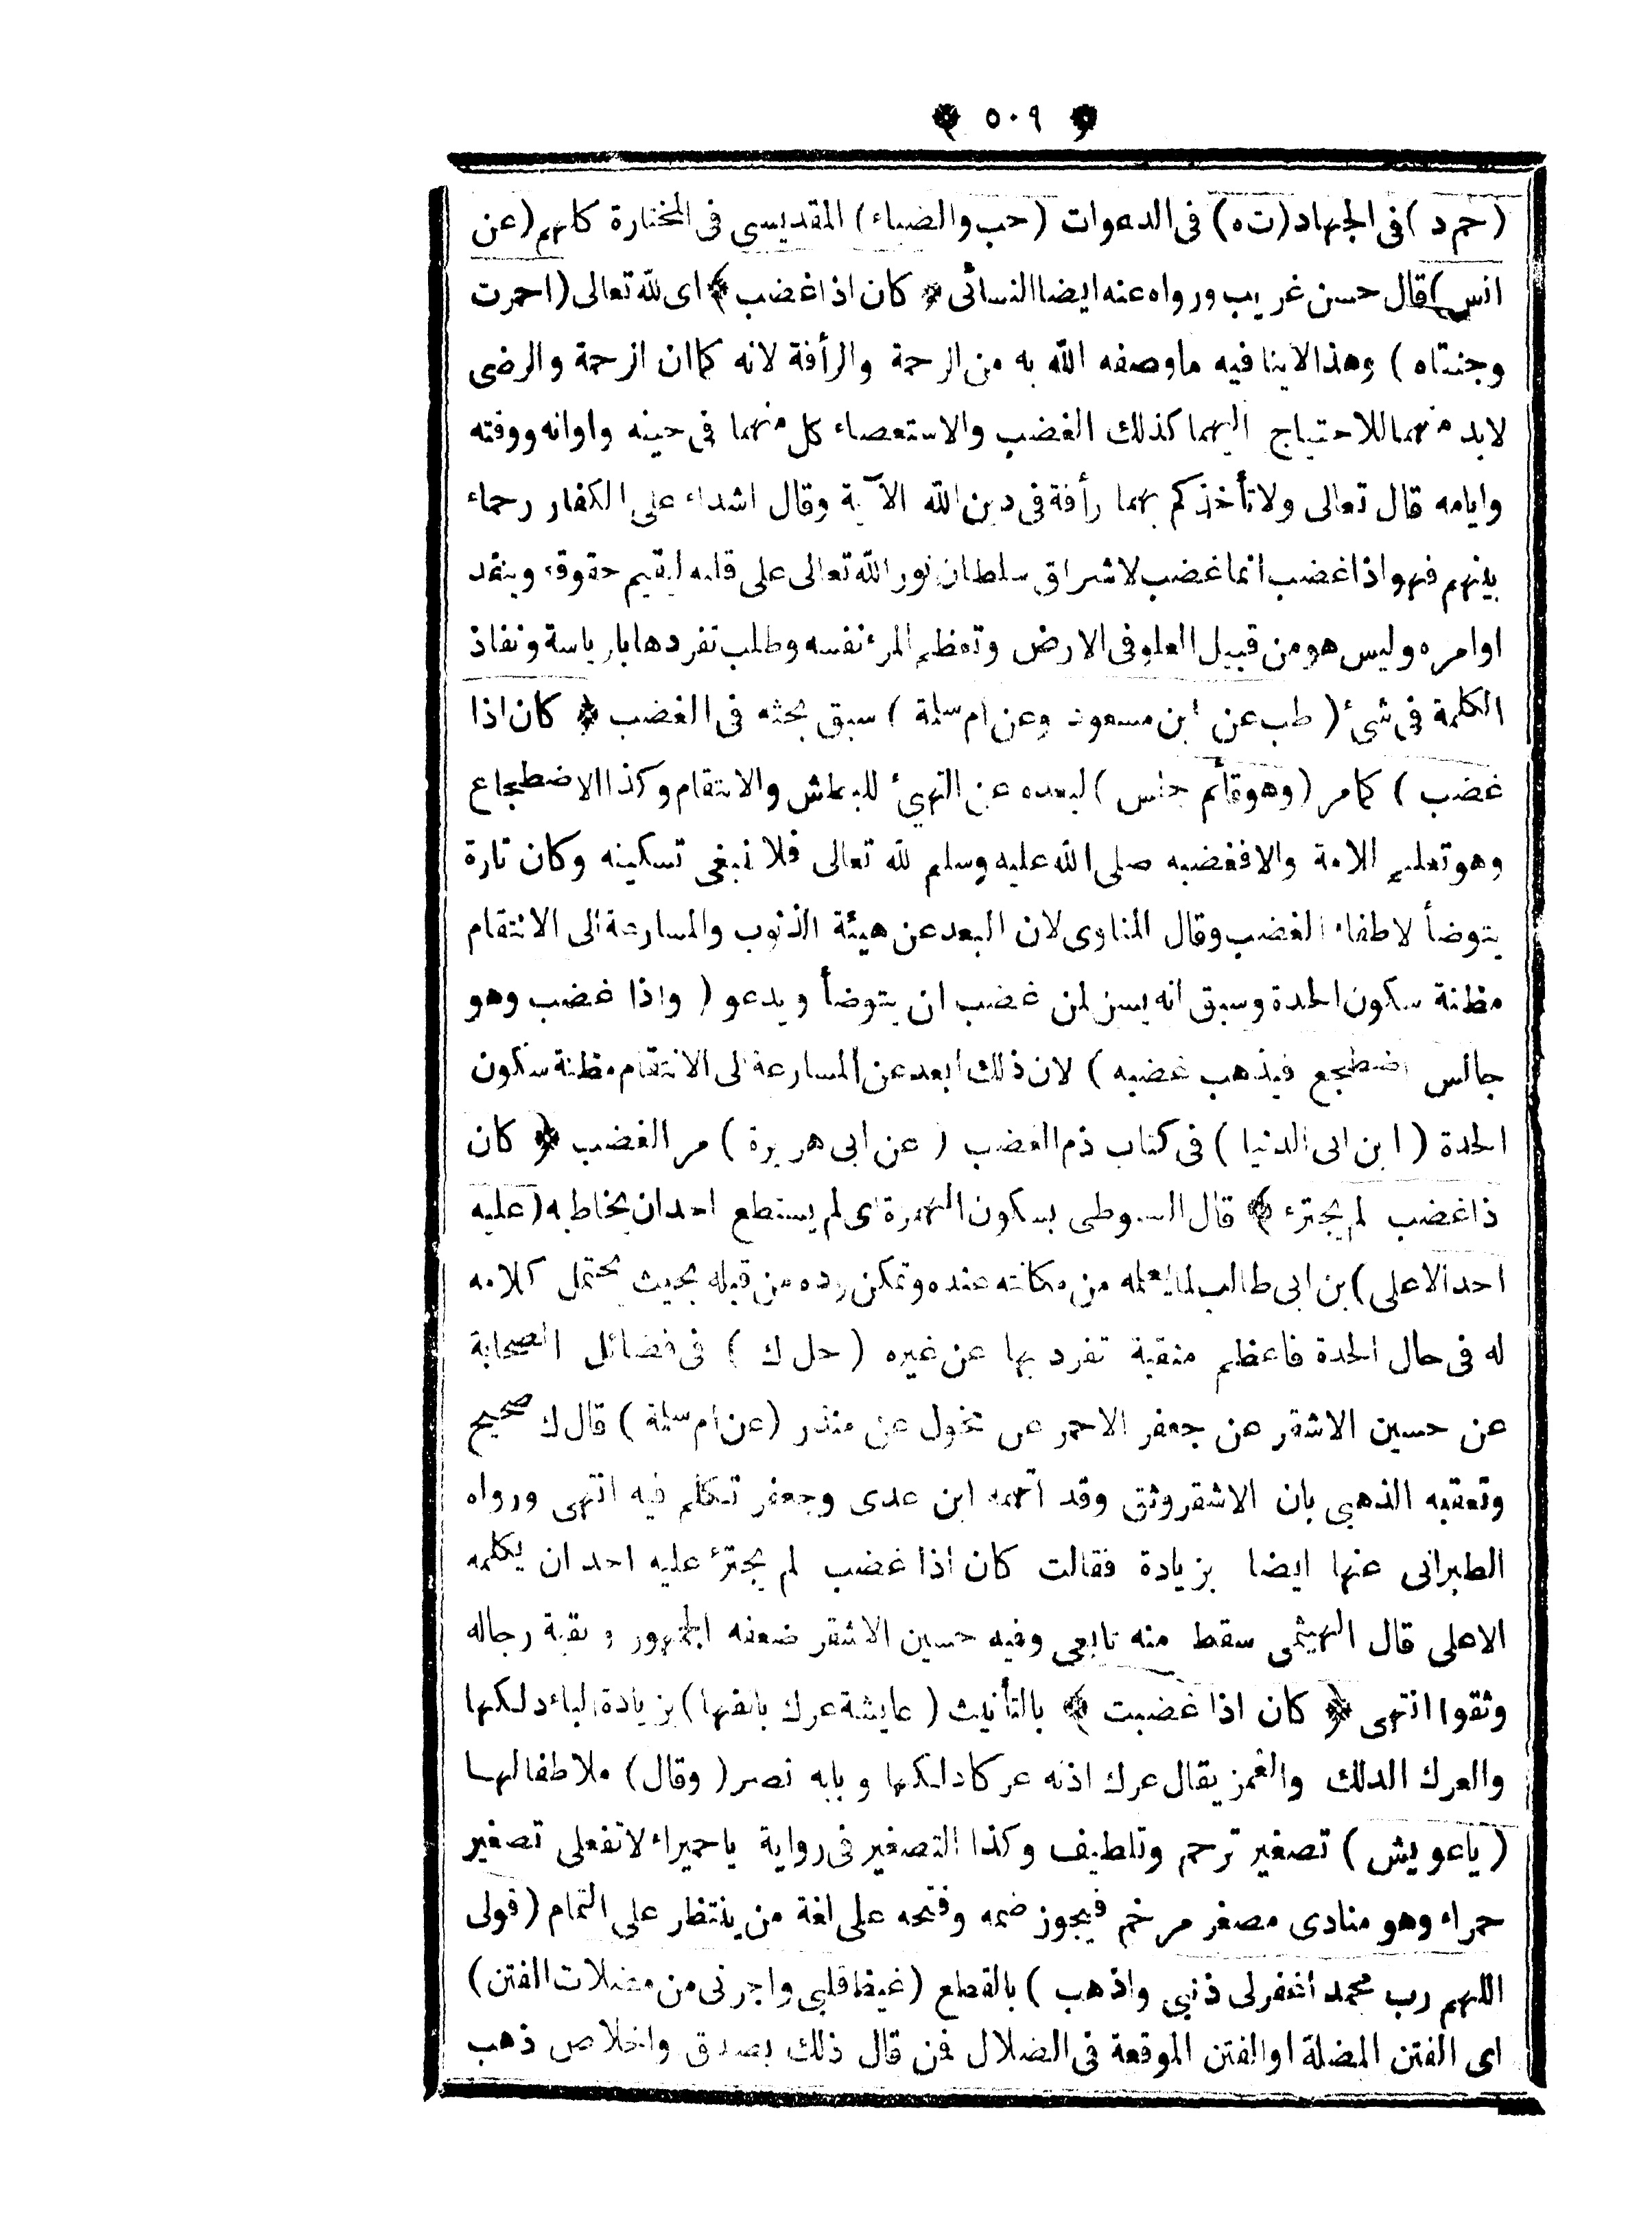 ﴿ ٥٠٩ ﴾
(حم د) فى الجهاد (ت ه) فى الدعوات (حب والضياء) المقديسى فى المختارة كلهم (عن
انس) قال حسن غريب ورواه عنه ايضا النسائى ﴿ كان اذا غضب ﴾ اى لله تعالى (احمرت
وجنتاه) وهذا لا ينافيه ما وصفه الله به من الرحمة والرأفة لانه كما ان الرحمة والرضى
لابد منهما للاحتياج اليهما كذلك الغضب والاستعصاء كل منهما فى حينه واوانه ووقته
وايامه قال تعالى ولا تأخذكم بهما رأفة فى دين الله الآية وقال اشداء على الكفار رحماء
بينهم فهو اذا غضب انما غضب لاشراق سلطان نور الله تعالى على قلبه ليقيم حقوقه وينفذ
اوامره وليس هو من قبيل العلو فى الارض وتعظم المرء نفسه وطلب تفردها بالرياسة ونفاذ
الكلمة فى شئ (طب عن ابن مسعود وعن ام سلمة) سبق بحثه فى الغضب ﴿ كان اذا
غضب) كمامر (وهو قائم جلس) لبعده عن التهئ للبطش والانتقام وكذا الاضطجاع
وهو تعليم الامة والا فغضبه صلى الله عليه وسلم لله تعالى فلا نبغى تسكينه وكان تارة
يتوضأ لاطفاء الغضب وقال المناوى لان البعد عن هيئة الذنوب والمسارعة الى الانتقام
مظنة سكون الحدة وسبق انه يسن لمن غضب ان يتوضأ ويدعو (واذا غضب وهو
جالس اضطجع فيذهب غضبه) لان ذلك ابعد عن المسارعة الى الانتقام مظنة سكون
الحدة (ابن ابى الدنيا) فى كتاب ذم الغضب (عن ابى هريرة) مر الغضب ﴿ كان
ذا غضب لم يجترء ﴾ قال السيوطى بسكون الهمزة اى لم يستطع احد ان يخاطبه (عليه
احد الا على) بن ابى طالب لما يعلمه من مكانته عنده وتمكن وده من قبله بحيث يحتمل كلامه
له فى حال الحدة فاعظم منقبة تفرد بها عن غيره (حل ك) فى فضائل الصحابة
عن حسين الاشقر عن جعفر الاحمر عن مخول عن منذر (عن ام سلمة) قال ك صحيح
وتعقبه الذهبى بان الاشقر وثق وقد اتهمه ابن عدى وجعفر تكلم فيه انتهى ورواه
الطبرانى عنها ايضا بزيادة فقالت كان اذا غضب لم يجترء عليه احد ان يكلمه
الا على قال الهيثمى سقط منه تابعى وفيه حسين الاشقر ضعفه الجمهور و بقية رجاله
وثقوا انتهى ﴿ كان اذا غضبت ﴾ بالتأنيث (عايشة عرك بانفها) بزيادة الباء دلكها
والعرك الدلك والغمز يقال عرك اذنه عركا دلكها وبابه نصر (وقال) ملاطفا لها
(ياعويش) تصغير ترحم وتلطيف وكذا التصغير فى رواية ياحميراء لا تفعلى تصغير
حمراء وهو منادى مصغر مرخم فيجوز ضمه وفتحه على لغة من ينتظر على التمام (قولى
اللهم رب محمد اغفر لى ذنبى واذهب) بالقطع (غيظ قلبى واجرنى من مضلات الفتن)
اى الفتن المضلة او الفتن الموقعة فى الضلال فمن قال ذلك بصدق واخلاص ذهب